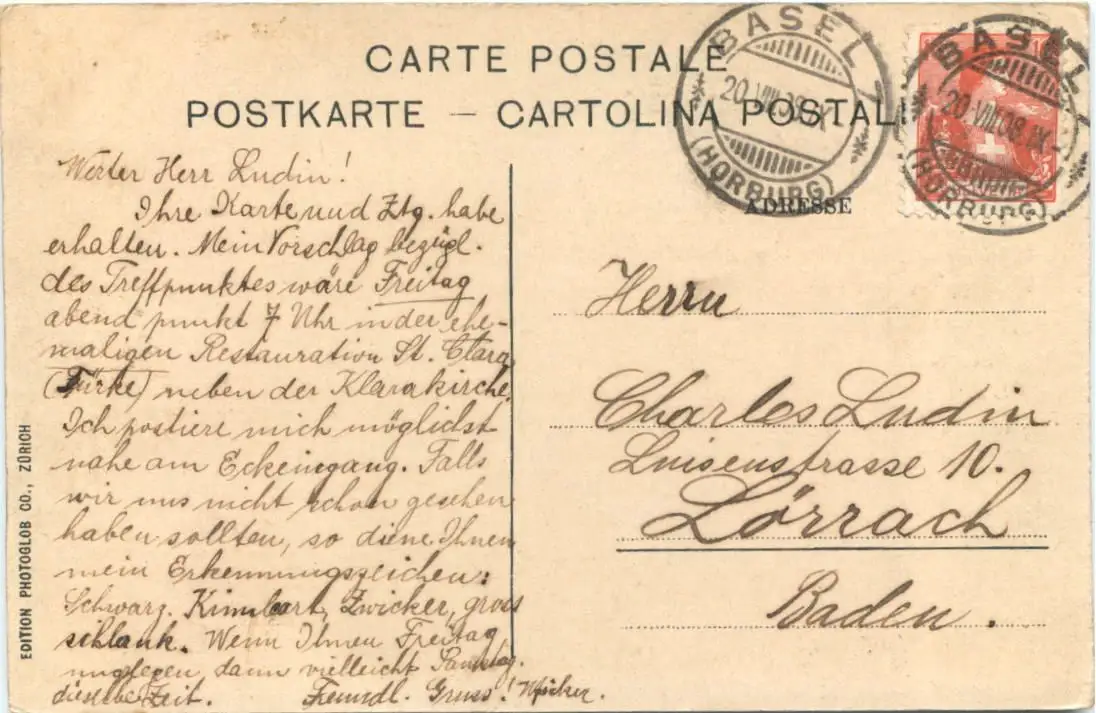 CARTE POSTALE
POSTKARTE – CARTOLINA POSTALE
BASEL 1
20.VIII.08.IX-
(HORBURG)
BASEL 1
20.VIII.08.IX-
(HORBURG)
ADRESSE
Werter Herr Ludin!
Ihre Karte und Ztg. habe
erhalten. Mein Vorschlag bezügl.
des Treffpunktes wäre Freitag
abend punkt 7 Uhr in der ehe-
maligen Restauration St. Clara
(Türke) neben der Klarakirche.
Ich postiere mich möglichst
nahe am Eckeingang. Falls
wir uns nicht schon gesehen
haben sollten, so diene Ihnen
mein Erkennungszeichen:
Schwarz. Kinnbart, Zwicker, gross
schlank. Wenn Ihnen Freitag
ungelegen, dann vielleicht Samstag.
dieselbe Zeit. Freundl. Gruss!
Herrn
Charles Ludin
Luisenstrasse 10.
Lörrach
Baden.
EDITION PHOTOGLOB CO., ZÜRICH